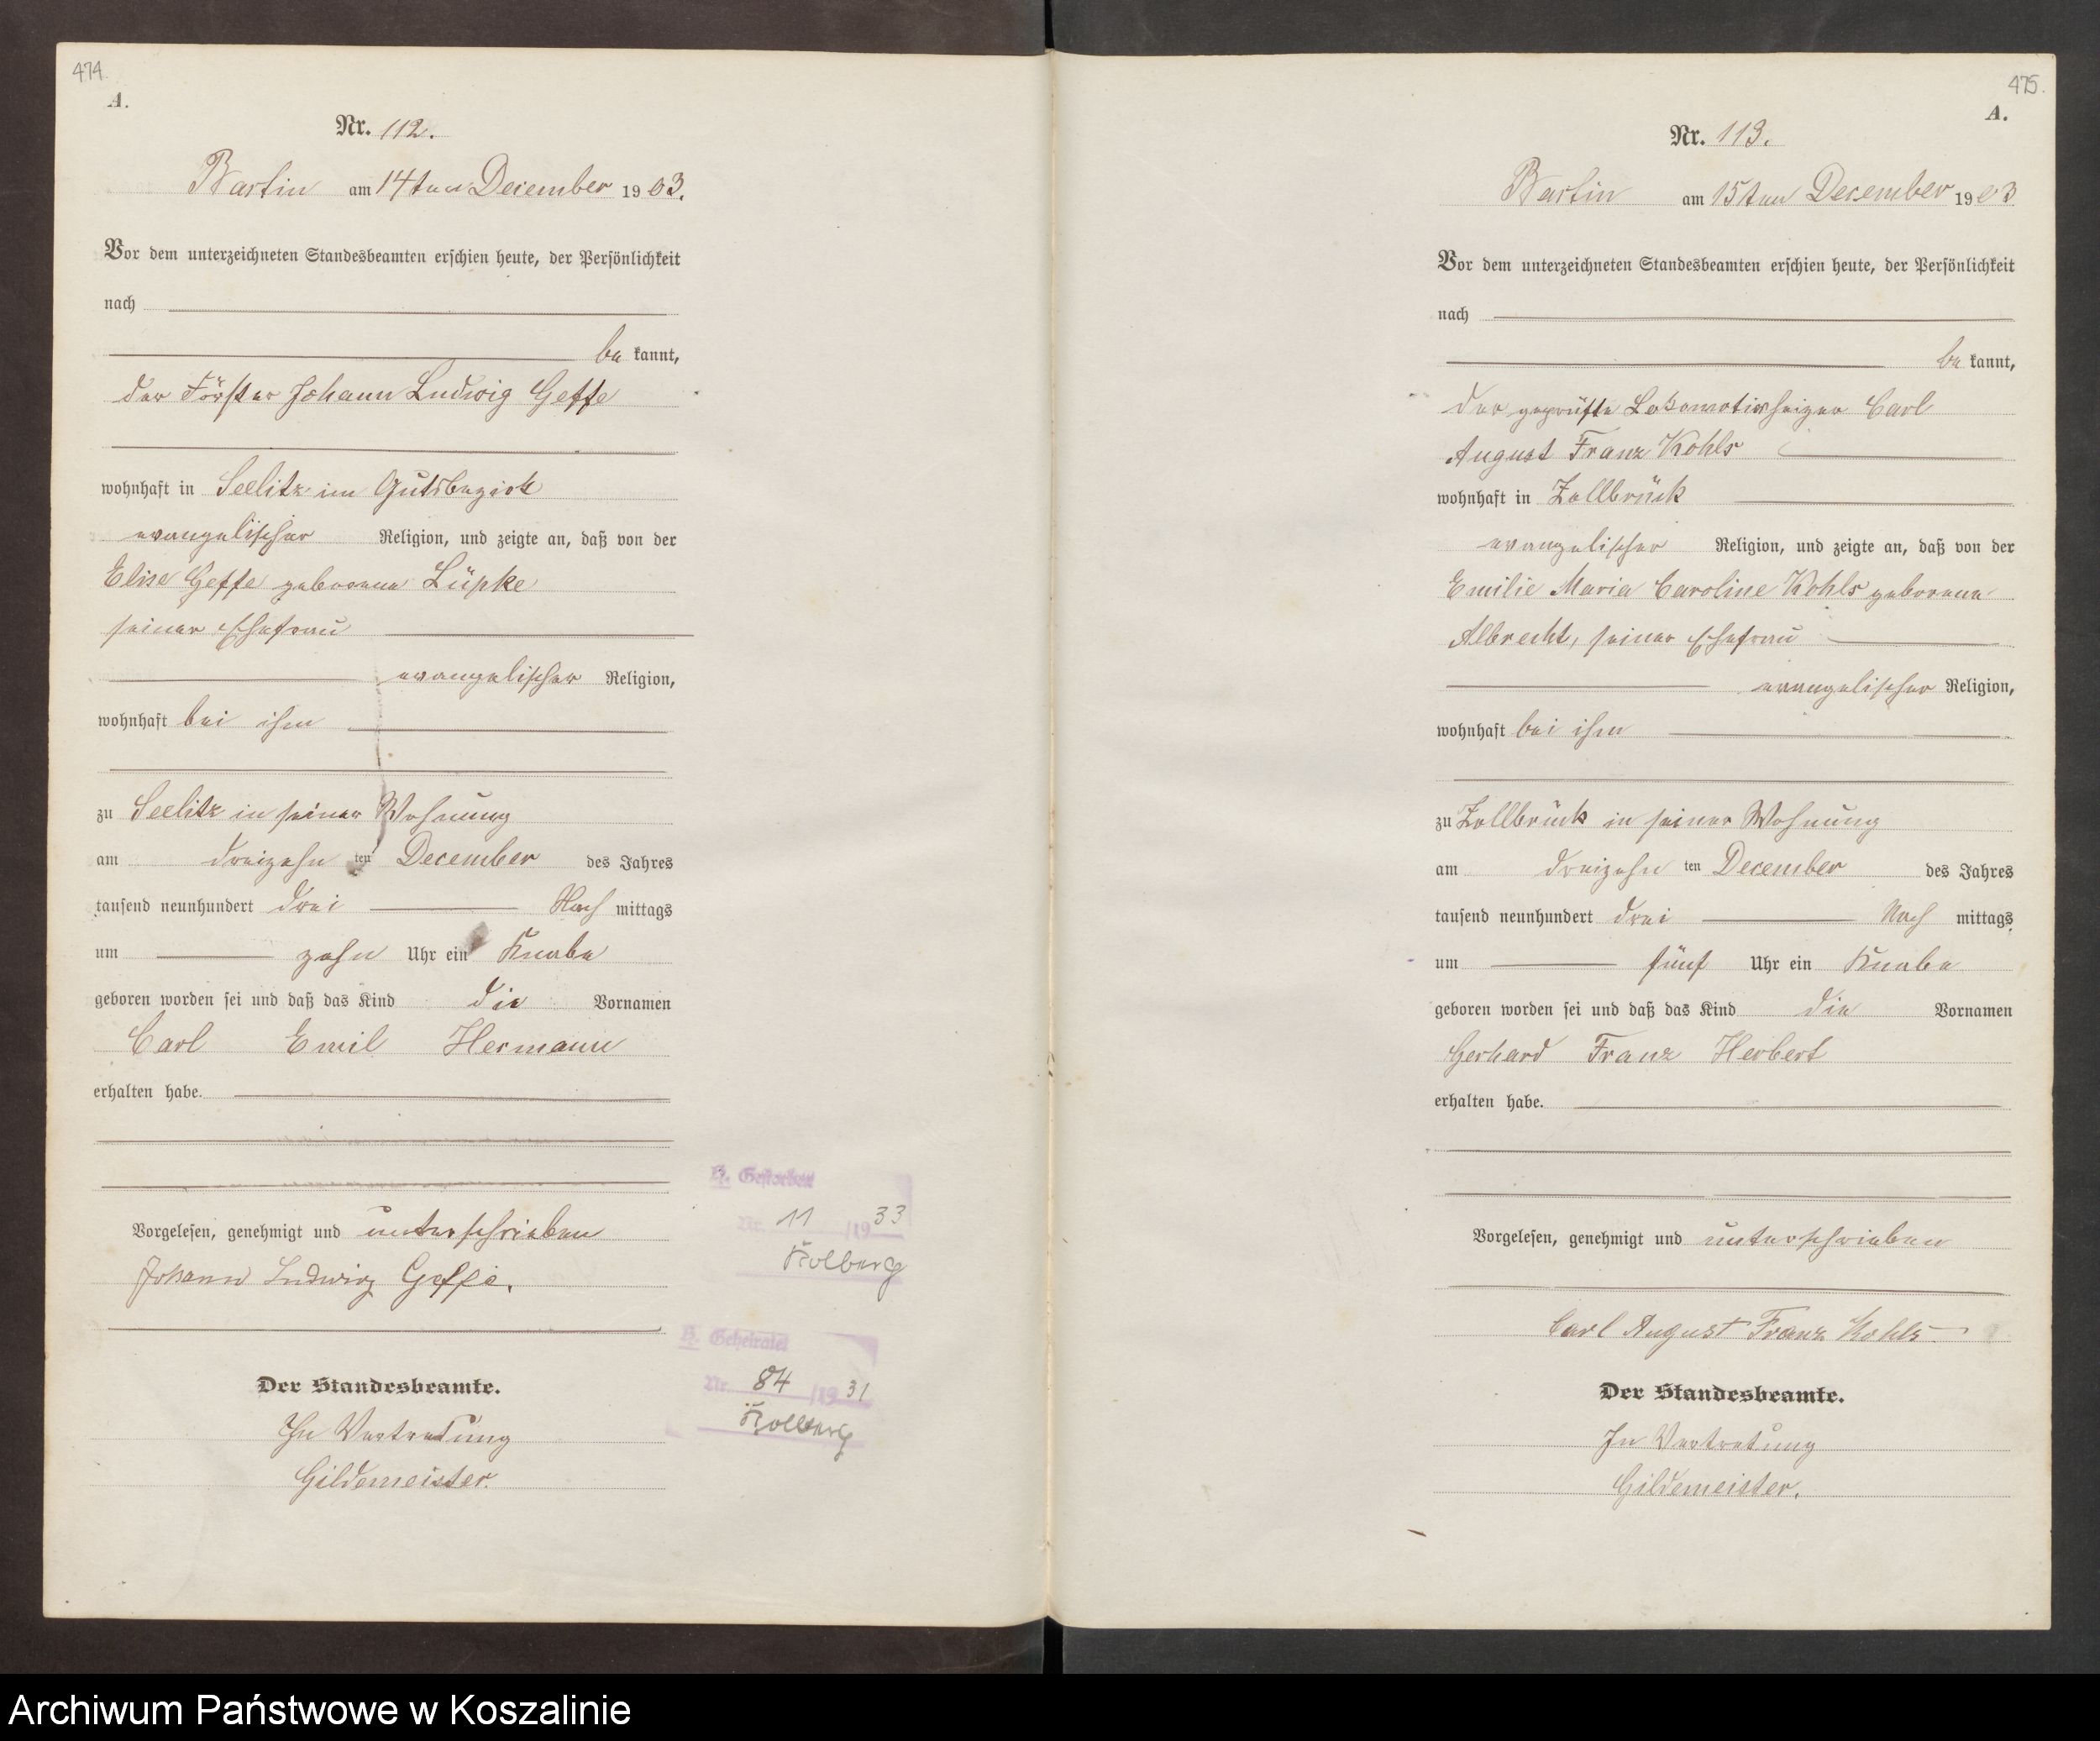 474.
A.
Nr. 112.
Bartin am 14ten December 1903.
Vor dem unterzeichneten Standesbeamten erschien heute, der Persönlichkeit
nach
bekannt,
der Förster Johann Ludwig Geffe
wohnhaft in Seelitz im Gutsbezirk
evangelischer Religion, und zeigte an, daß von der
Elise Geffe geborene Lüpke
seiner Ehefrau
evangelischer Religion,
wohnhaft bei ihm
zu Seelitz in seiner Wohnung
am dreizehnten December des Jahres
tausend neunhundert drei Nachmittags
um zehn Uhr ein Knabe
geboren worden sei und daß das Kind die Vornamen
Carl Emil Hermann
erhalten habe.
Vorgelesen, genehmigt und unterschrieben
Johann Ludwig Geffe.
Der Standesbeamte.
In Vertretung
Gildemeister.
Gestorben
Nr. 11 /1933
Kolberg
Geheiratet
Nr. 84 /1931
Kolberg
475.
A.
Nr. 113.
Bartin am 15ten December 1903
Vor dem unterzeichneten Standesbeamten erschien heute, der Persönlichkeit
nach
bekannt,
der geprüfte Lokomotivheizer Carl
August Franz Kohls
wohnhaft in Zollbrück
evangelischer Religion, und zeigte an, daß von der
Emilie Maria Caroline Kohls geborene
Albrecht, seiner Ehefrau
evangelischer Religion,
wohnhaft bei ihm
zu Zollbrück in seiner Wohnung
am dreizehnten December des Jahres
tausend neunhundert drei Nachmittags
um fünf Uhr ein Knabe
geboren worden sei und daß das Kind die Vornamen
Gerhard Franz Herbert
erhalten habe.
Vorgelesen, genehmigt und unterschrieben
Carl August Franz Kohls
Der Standesbeamte.
In Vertretung
Gildemeister.
Archiwum Państwowe w Koszalinie